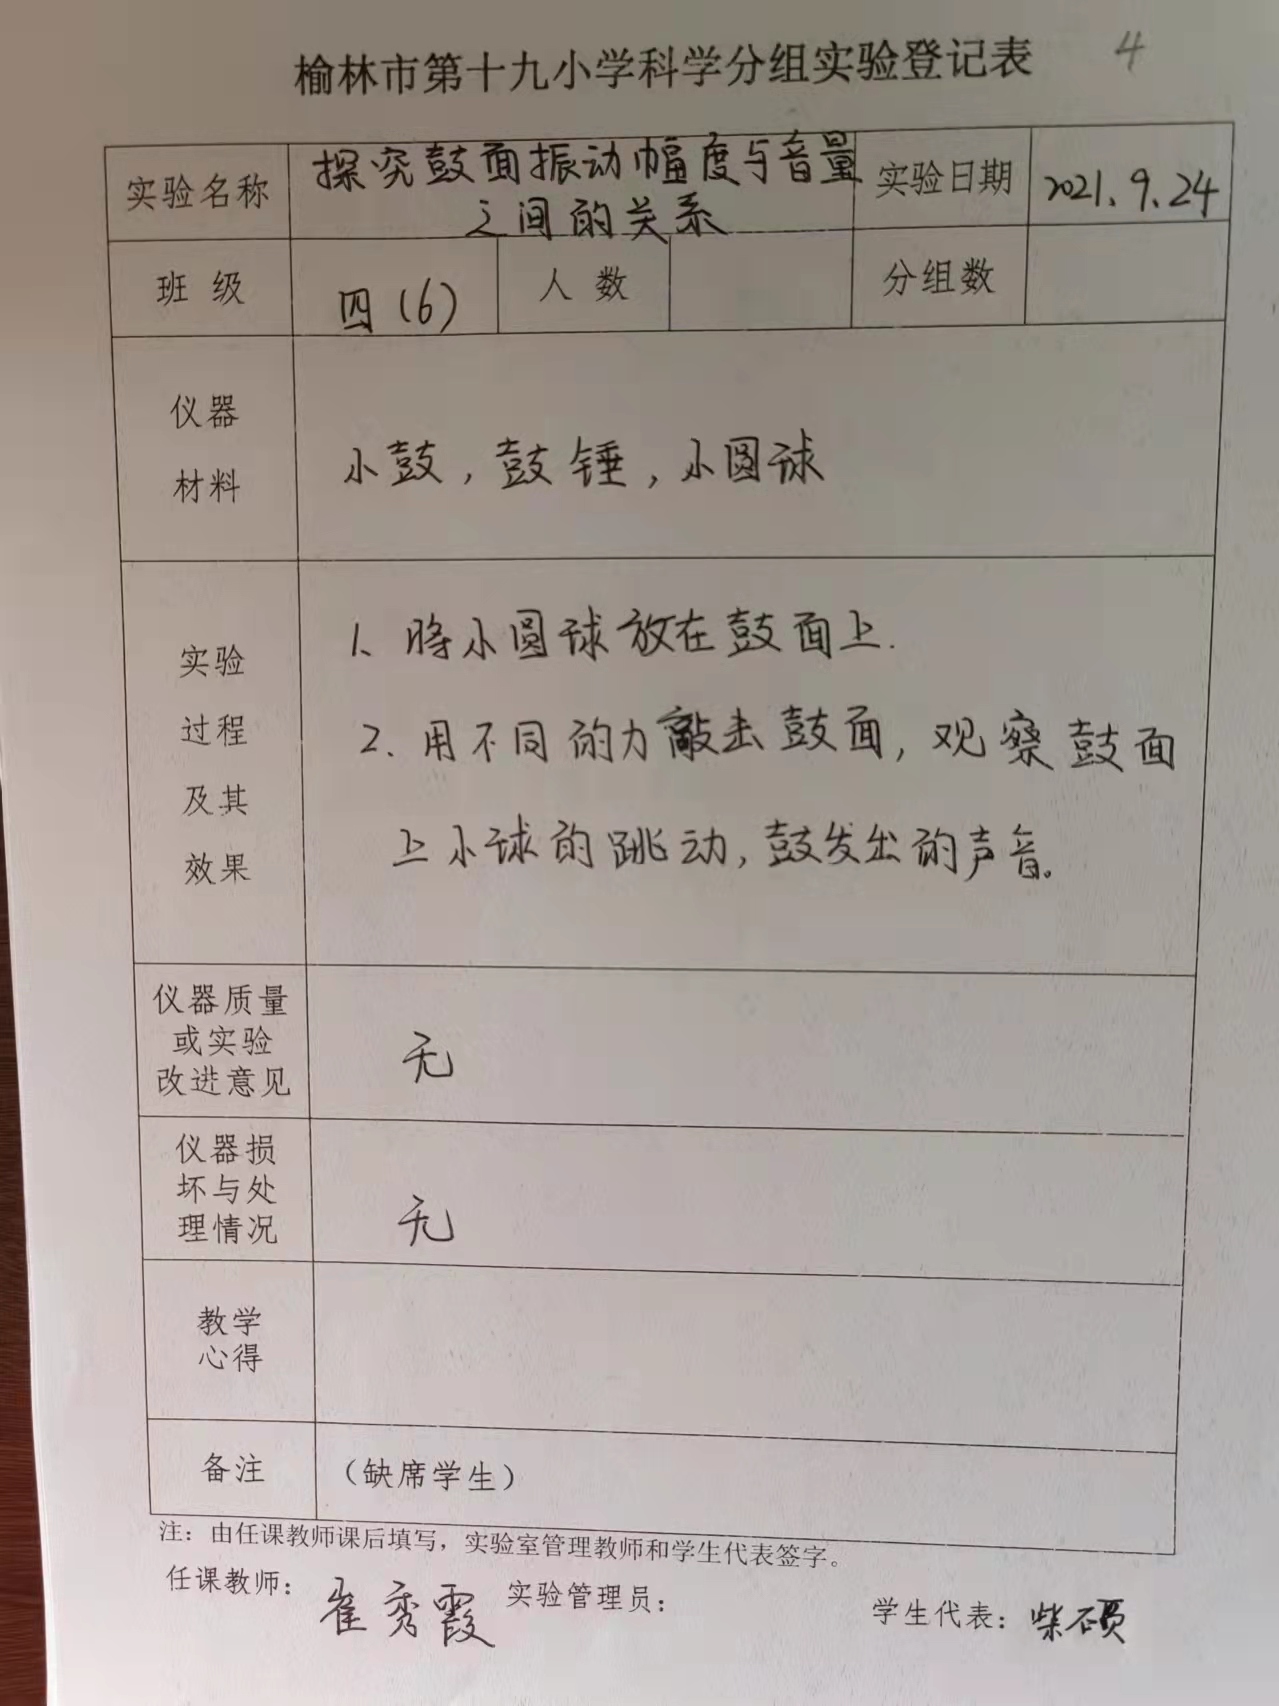 榆林市第十九小学科学分组实验登记表 4
实验名称 探究鼓面振动幅度与音量之间的关系 实验日期 2021.9.24
班级 四(6) 人数 分组数
仪器
材料
小鼓,鼓锤,小圆球
实验
过程
及其
效果
1、将小圆球放在鼓面上.
2、用不同的力敲击鼓面,观察鼓面
上小球的跳动,鼓发出的声音。
仪器质量
或实验
改进意见
无
仪器损
坏与处
理情况
无
教学
心得
备注 (缺席学生)
注:由任课教师课后填写,实验室管理教师和学生代表签字。
任课教师:崔秀霞 实验管理员: 学生代表:柴硕